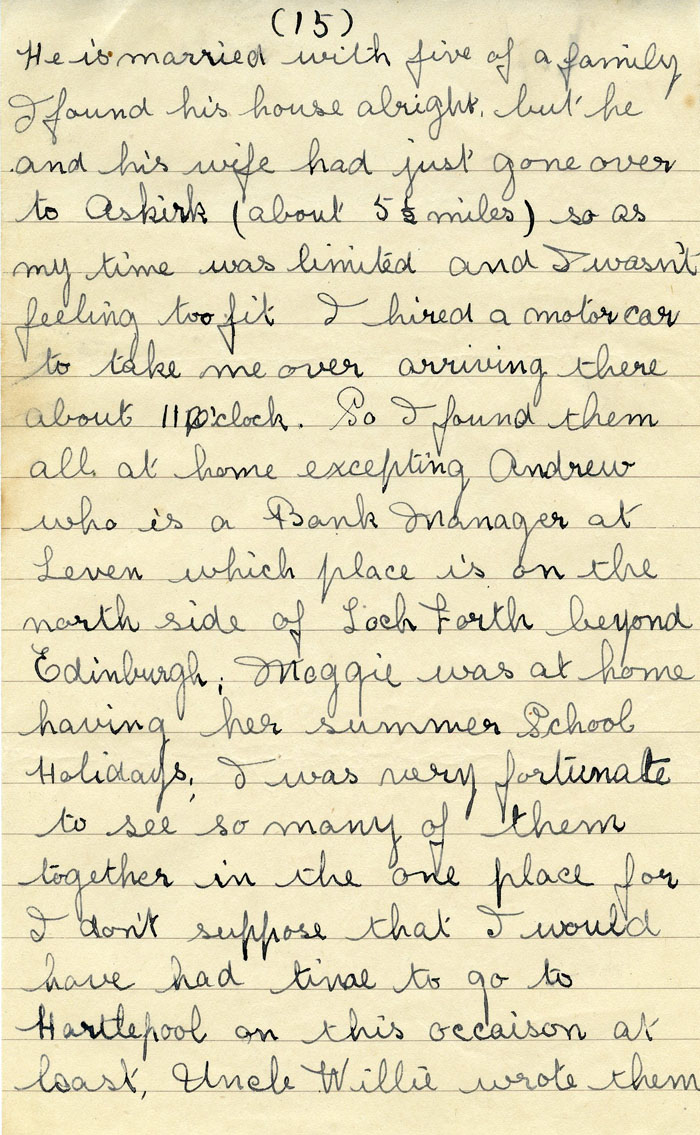 (15)
He is married with five of a family
I found his house alright, but he
and his wife had just gone over
to Askirk (about 5½ miles) so as
my time was limited and I wasn't
feeling too fit I hired a motor car
to take me over arriving there
about 11 o'clock. So I found them
all at home excepting Andrew
who is a Bank Manager at
Leven which place is on the
north side of Loch Forth beyond
Edinburgh; Meggie was at home
having her summer School
Holidays, I was very fortunate
to see so many of them
together in the one place for
I don't suppose that I would
have had time to go to
Hartlepool on this occaison at
least, Uncle Willie wrote them